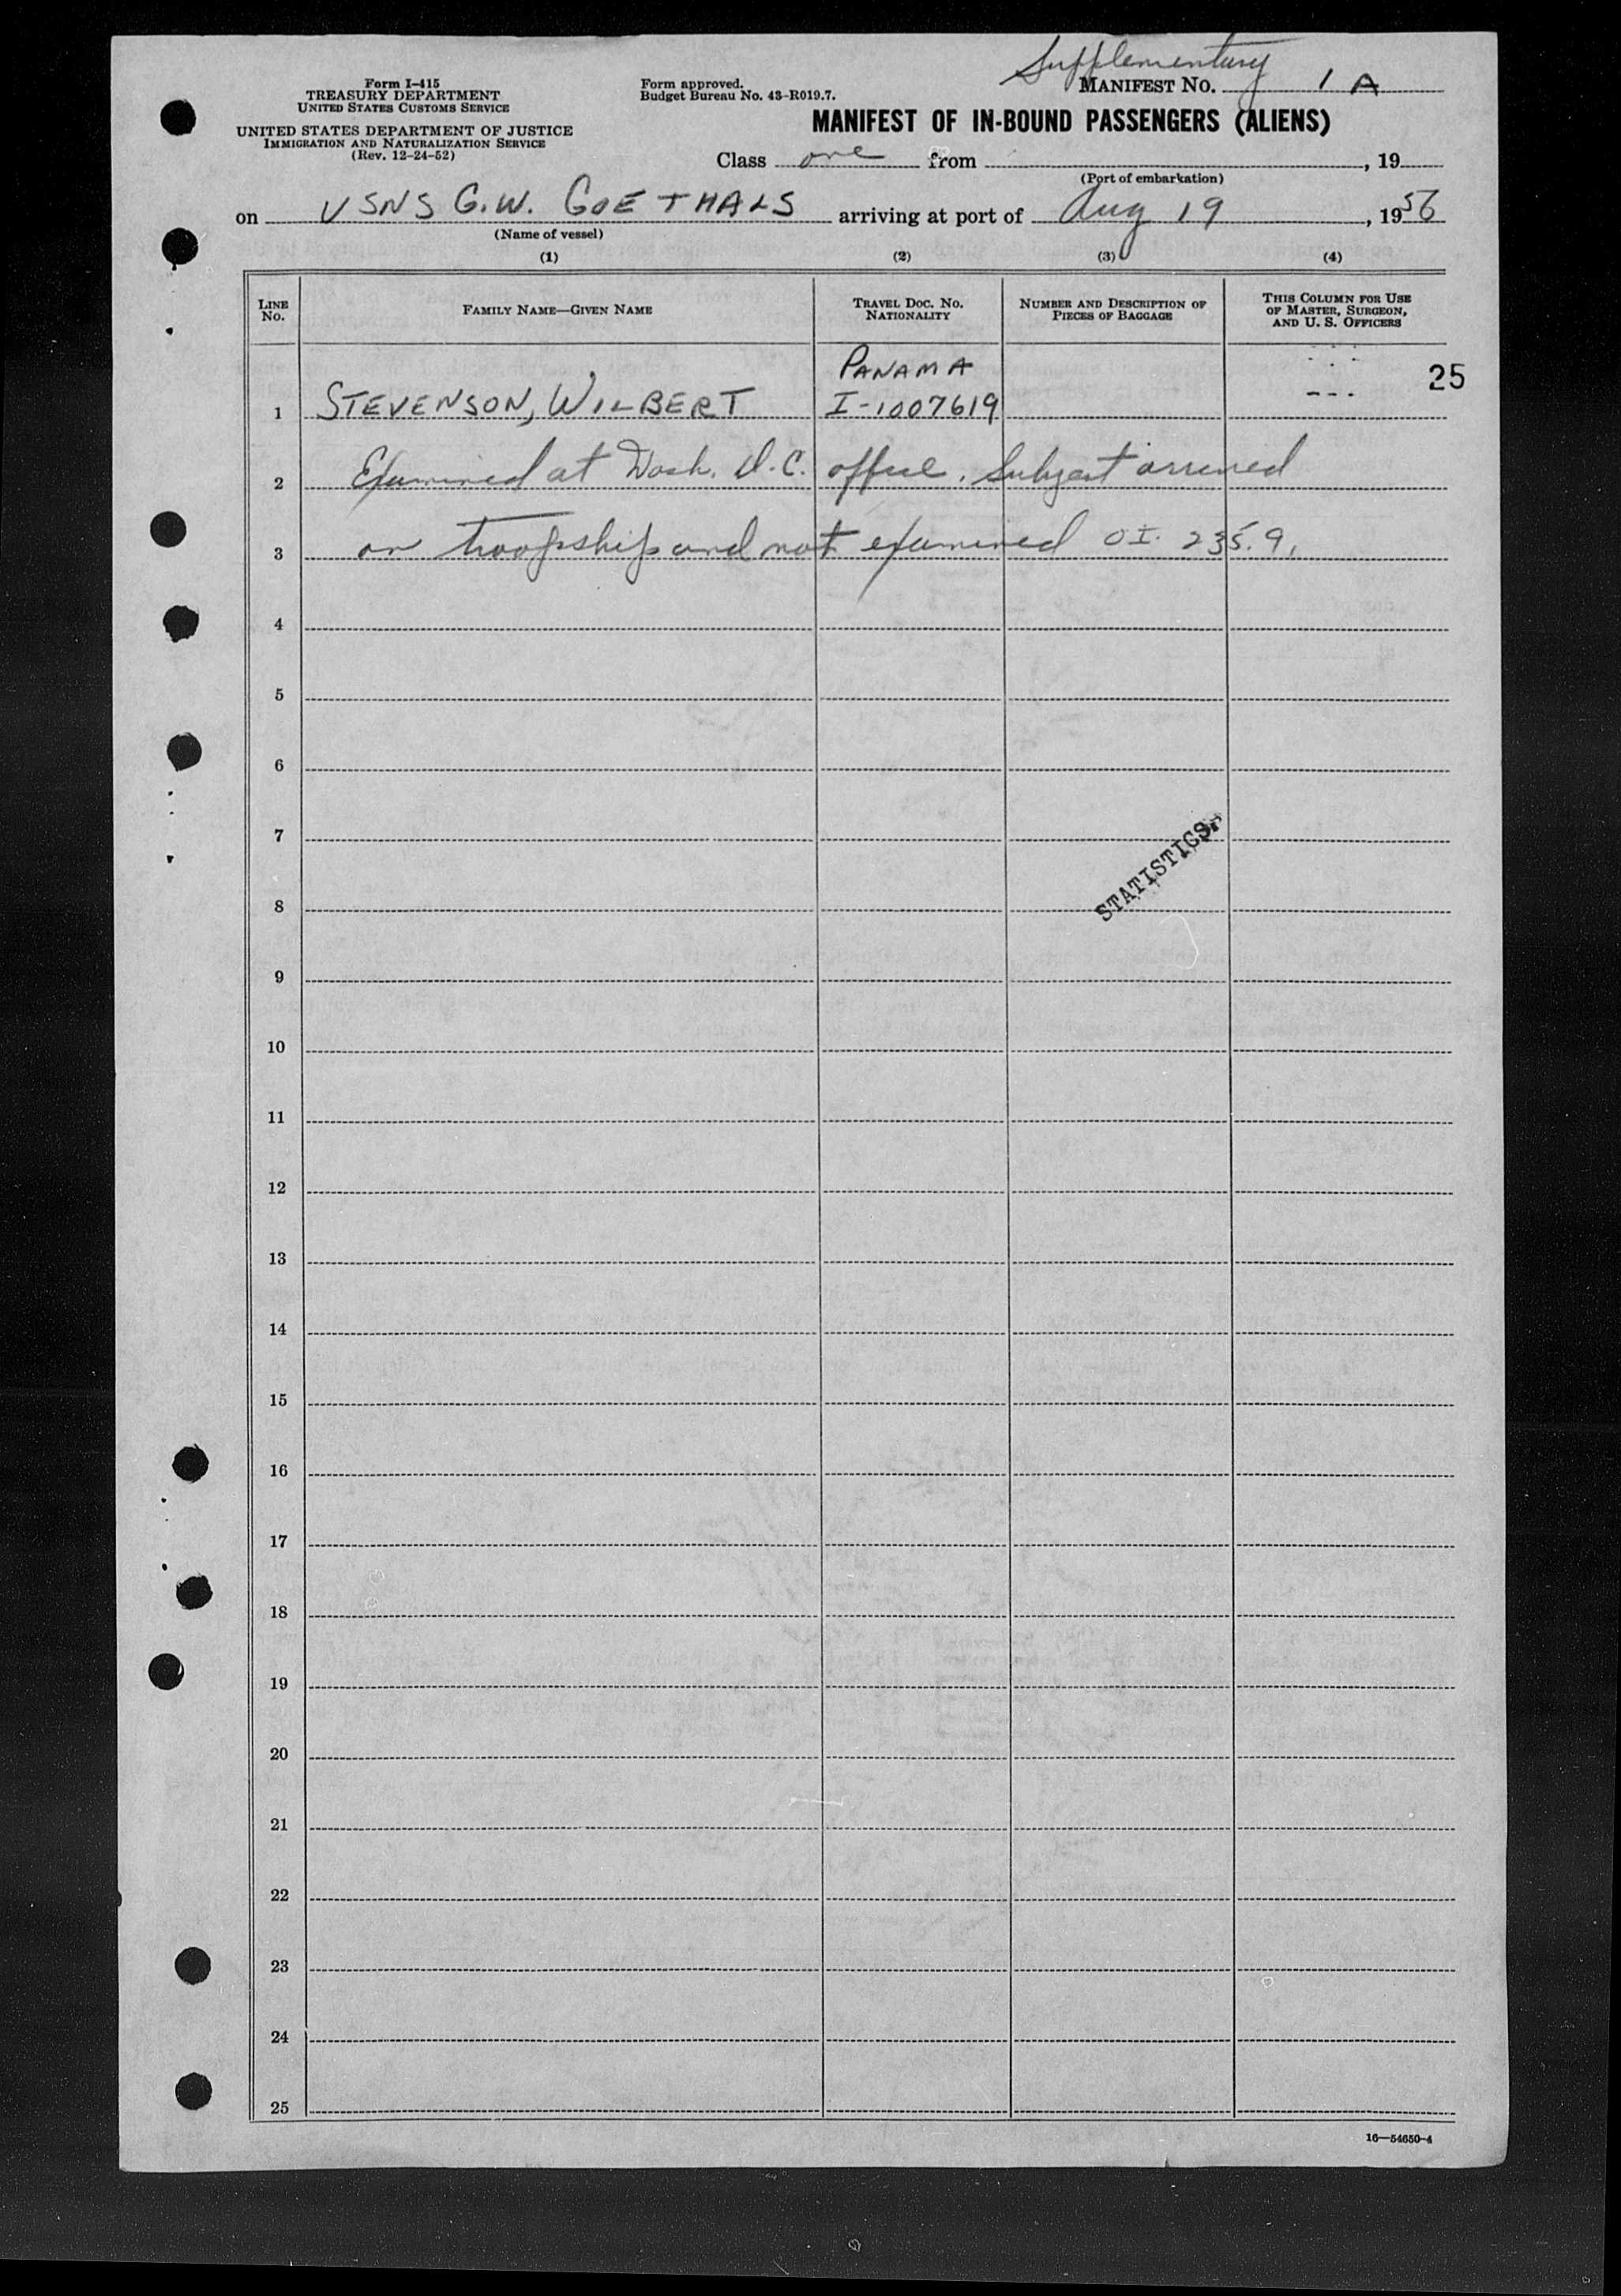 Supplementary
Form I-415
TREASURY DEPARTMENT
UNITED STATES CUSTOMS SERVICE
UNITED STATES DEPARTMENT OF JUSTICE
IMMIGRATION AND NATURALIZATION SERVICE
(Rev. 12-24-52)
Form approved.
Budget Bureau No. 43-R019.7.
MANIFEST NO. 1 A
MANIFEST OF IN-BOUND PASSENGERS (ALIENS)
Class one from , 19
(Port of embarkation)
on USNS G.W. GOETHALS arriving at port of Aug 19, 1956
(Name of vessel)
(1) (2) (3) (4)
LINE NO.
FAMILY NAME—GIVEN NAME
TRAVEL DOC. NO. NATIONALITY
NUMBER AND DESCRIPTION OF PIECES OF BAGGAGE
THIS COLUMN FOR USE OF MASTER, SURGEON, AND U. S. OFFICERS
PANAMA
25
1 STEVENSON, WILBERT I-1007619 ---
2 Examined at Wash. D.C. office. Subject arrived
3 on troopship and not examined OI. 235.9.
4
5
6
7
STATISTICS
8
9
10
11
12
13
14
15
16
17
18
19
20
21
22
23
24
25
16—54650-4